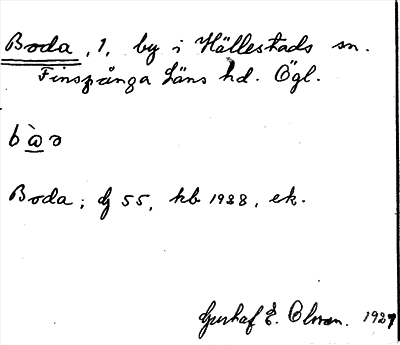 Boda, 1, by i Hällestads sn.
Finspånga Läns hd. Ögl.
bàə
Boda; G 55, kb 1938, ek.
Gustaf E. Olsson. 1927